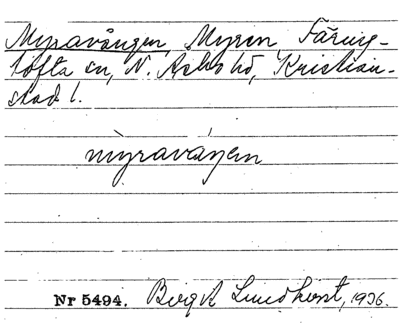 Myravången, Myren Färing-
tofta sn, N. Åsbo hd, Kristian-
stad l.
myravángen
Nr 5494. Birgit Lundkvist, 1936.